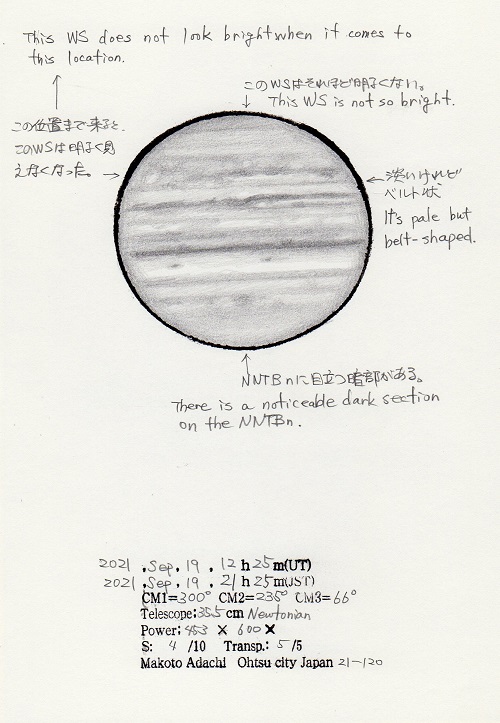 This WS does not look bright when it comes to
this location.
このWSはそれほど明るくない。
This WS is not so bright.
この位置まで来ると、
このWSは明るく見
えなくなった。
淡いけれど
ベルト状
It's pale but
belt-shaped.
NNTBnに目立つ暗部がある。
There is a noticeable dark section
on the NNTBn.
2021 , Sep, 19 , 12 h 25 m(UT)
2021 , Sep, 19 , 21 h 25 m(JST)
CM1=300° CM2=235° CM3=66°
Telescope:35.5 cm Newtonian
Power: 453 × 600 ×
S: 4 /10 Transp.: 5 /5
Makoto Adachi Ohtsu city Japan 21-120